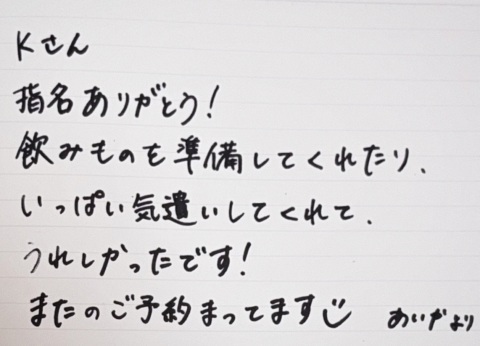 Kさん
指名ありがとう!
飲みものを準備してくれたり、
いっぱい気遣いしてくれて、
うれしかったです!
またのご予約まってます
あいかより